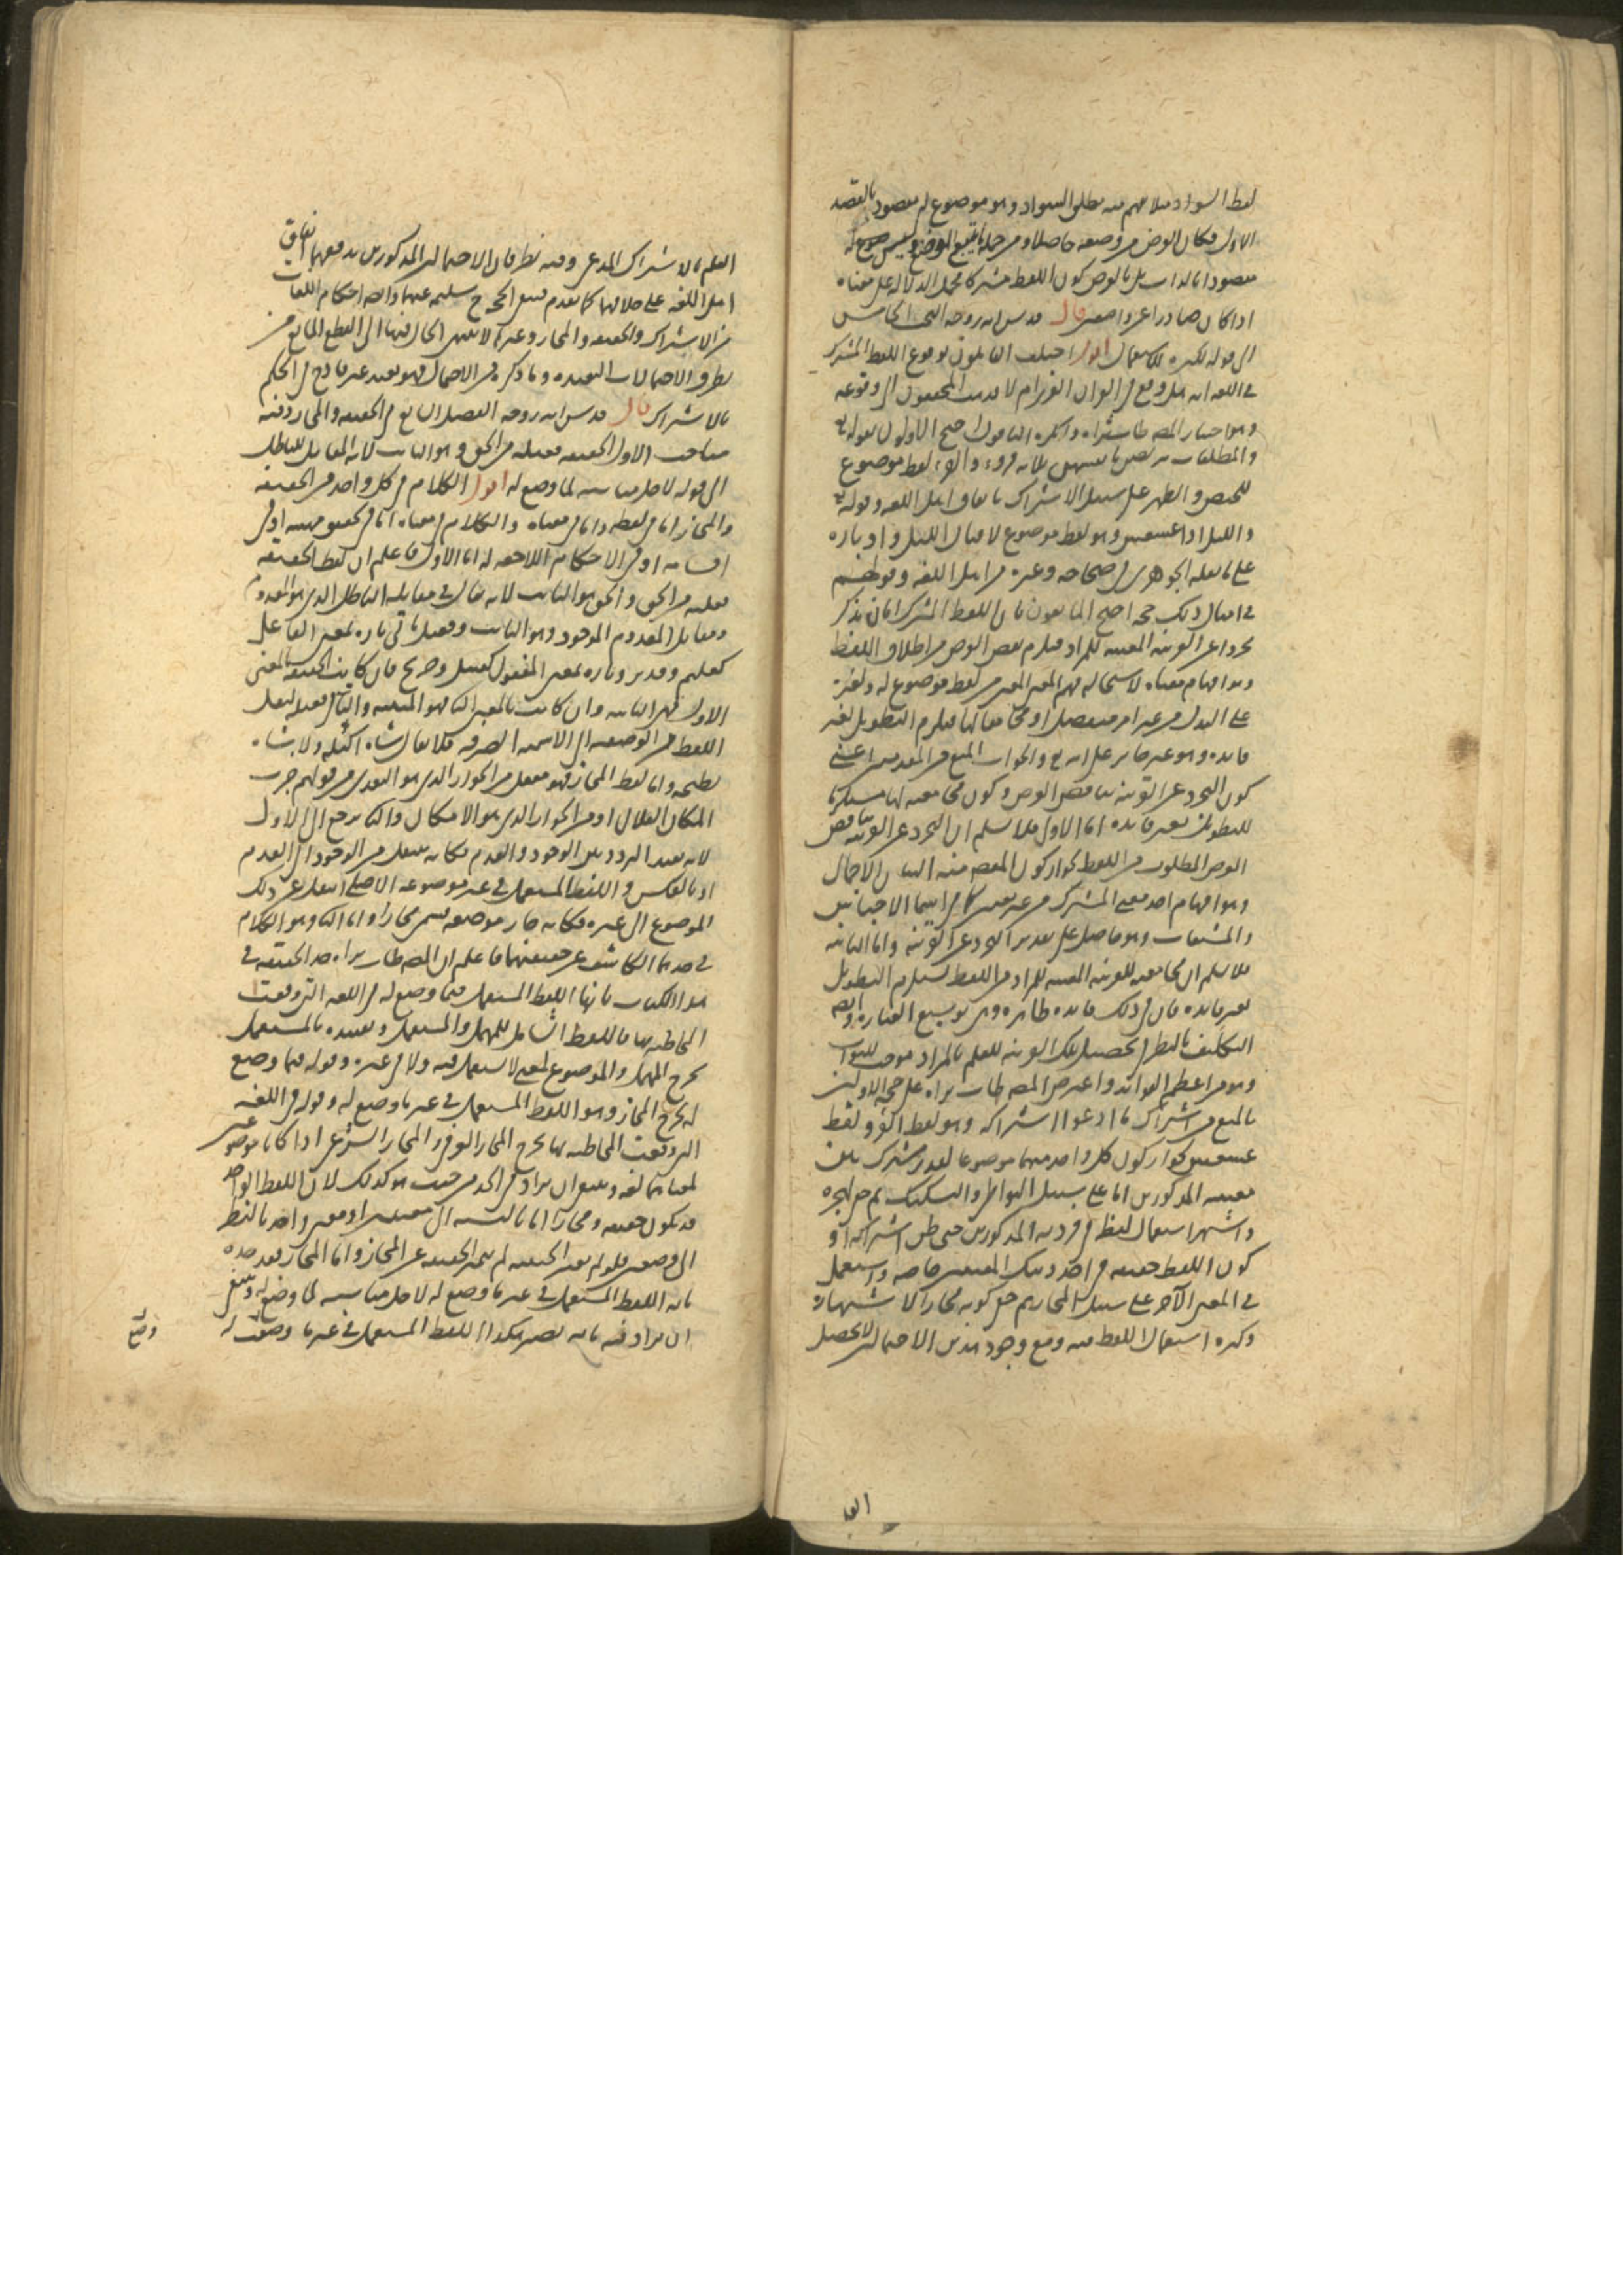 لفظ السواد مثلا يفهم منه مطلق السواد وهو موضوع له مقصود بالقصد
الاول فكان الغرض من وضعه حاصلا ومن جهة تتبع الوضع وليس
مقصودا بالذات بل بالعرض كون اللفظ مشتركا محمل الدلالة على معناه
اذا كان صادرا عن واضعين قال قدس الله روحه البحث الخامس
الى قوله لكثرة الاستعمال اقول اختلف القايلون بوقوع اللفظ المشترك
في اللغة انه هل وقع في القران العزيز ام لا فذهب المحققون الى وقوعه
وهو اختيار المصنف طاب ثراه وانكره الباقون احتج الاولون بقوله تع
والمطلقات يتربصن بانفسهن ثلاثة قروء والقرء لفظ موضوع
للحيض والطهر على سبيل الاشتراك باتفاق اهل اللغة وقوله تع
والليل اذا عسعس وهو لفظ موضوع لاقبال الليل وادباره
على ما نقله الجوهري في صحاحه وغيره من اهل اللغة وقولهم
في امثال ذلك حجة احتج المانعون بان اللفظ المشترك اما ان يذكر
مجردا عن القرينة المعينة للمراد فيلزم نقض الغرض من اطلاق اللفظ
وهو افهام معناه لاستحالة فهم المعنى المعين من لفظ موضوع له ولغيره
على البدل من غير امر منفصل او مجامعا لها فيلزم التطويل لغير
فايدة وهو غير جايز على الله تع والجواب المنع من المقدمتين اعني
كون التجرد عن القرينة يناقض الغرض وكون مجامعته لها مستلزما
للتطويل بغير فايدة اما الاول فلا نسلم ان التجرد عن القرينة يناقض
الغرض المطلوب من اللفظ لجواز كون المقصود منه البيان الاجمالي
وهو افهام احد معنيي المشترك من غير تعيين كما في اسما الاجناس
والمشتقات وهو حاصل على تقدير التجرد عن القرينة واما الثانية
فلا نسلم ان مجامعته للقرينة المعينة للمراد من اللفظ يستلزم التطويل
بغير فايدة فان في ذلك فايدة ظاهرة وهي توسيع العبارة وايضا
التكليف بالنظر في تحصيل تلك القرينة للعلم بالمراد موجب للثواب
وهو من اعظم الفوائد واعترض المصنف طاب ثراه على حجة الاولين
بالمنع من اشتراك ما ادعوا اشتراكه وهو لفظ القرء ولفظ
عسعس لجواز كون كل واحد منهما موضوعا لقدر مشترك بين
معنييه المذكورين اما على سبيل التواطؤ او التشكيك ثم
واشتهر استعمال لفظ في فرديه المذكورين حتى ظن اشتراكه او
كون اللفظ حقيقة في احد ذينك المعنيين خاصة واستعمل
في المعنى الآخر على سبيل المجاز ثم خفي كونه مجازا لاشتهاره
وكثرة استعمال اللفظ فيه ومع وجود هذين الاحتمالين لا يحصل
العلم بالاشتراك المدعى وفيه نظر فان الاحتمالين المذكورين يدفعهما اتفاق
اهل اللغة على خلافهما كما تقدم
من الاشتراك والحقيقة والمجاز وغيرها لا ينتهي الحال فيها الى القطع المانع من
تطرق الاحتمالات البعيدة وما ذكره من الاحتمال فهو بعيد غير قادح في الحكم
بالاشتراك قال قدس الله روحه الفصل الرابع في الحقيقة والمجاز وفيه
مباحث الاول الحقيقة فعيلة من الحق وهو الثابت لانه المقابل للباطل
الى قوله لاجل مناسبة لما وضع له اقول الكلام في كل واحد من الحقيقة
والمجاز اما في لفظه واما في معناه والكلام في معناه اما في تحقيق مهيته او في
اقسامه او في الاحكام اللاحقة له اما الاول فاعلم ان لفظ الحقيقة
فعيلة من الحق والحق هو الثابت لانه يقال في مقابلة الباطل الذي هو المعدوم
ومقابل المعدوم الموجود وهو الثابت وفعيل ياتي تارة بمعنى الفاعل
كعليم وقدير وتارة بمعنى المفعول كقتيل وجريح فان كانت الحقيقة بالمعنى
الاول فهي الثابتة وان كانت بالمعنى الثاني فهو المثبتة والتاء لنقل
اللفظ من الوصفية الى الاسمية الصرفة فلا يقال شاة اكيلة ولا شاة
نطيحة واما لفظ المجاز فهو مفعل من الجواز الذي هو التعدي من قولهم جزت
المكان الفلاني او من الجواز الذي هو الامكان والثاني يرجع الى الاول
لانه يفيد التردد بين الوجود والعدم فكانه ينتقل من الوجود الى العدم
او بالعكس واللفظ المستعمل في غير موضوعه الاصلي انتقل عن ذلك
الموضوع الى غيره فكانه جاز موضعه فسمي مجازا واما الثاني وهو الكلام
في حدهما الكاشف عن حقيقتهما فاعلم ان المصنف طاب ثراه حد الحقيقة في
هذا الكتاب بانها اللفظ المستعمل فيما وضع له في اللغة التي وقعت
المخاطبة بها فاللفظ شامل للمهمل والمستعمل وتقييده بالمستعمل
يخرج المهمل والموضوع لمعنى لا يستعمل فيه ولا في غيره وقوله فيما وضع
له يخرج المجاز وهو اللفظ المستعمل في غير ما وضع له وقوله في اللغة
التي وقعت المخاطبة بها يخرج المجاز العرفي والمجاز الشرعي اذا كانا
لمعناهما لغة وينبغي ان يزاد في الحد من حيث هو كذلك لان اللفظ الواحد
قد يكون حقيقة ومجازا اما بالنسبة الى معنيين او معنى واحد بالنظر
الى وضعين فلو لم يعتبر الحيثية لم تتميز الحقيقة عن المجاز واما المجاز فقد حده
بانه اللفظ المستعمل في غير ما وضع له لاجل مناسبة لما وضع له وينبغي
ان يزاد فيه بانه يصير هكذا اللفظ المستعمل في غير ما وضعت له